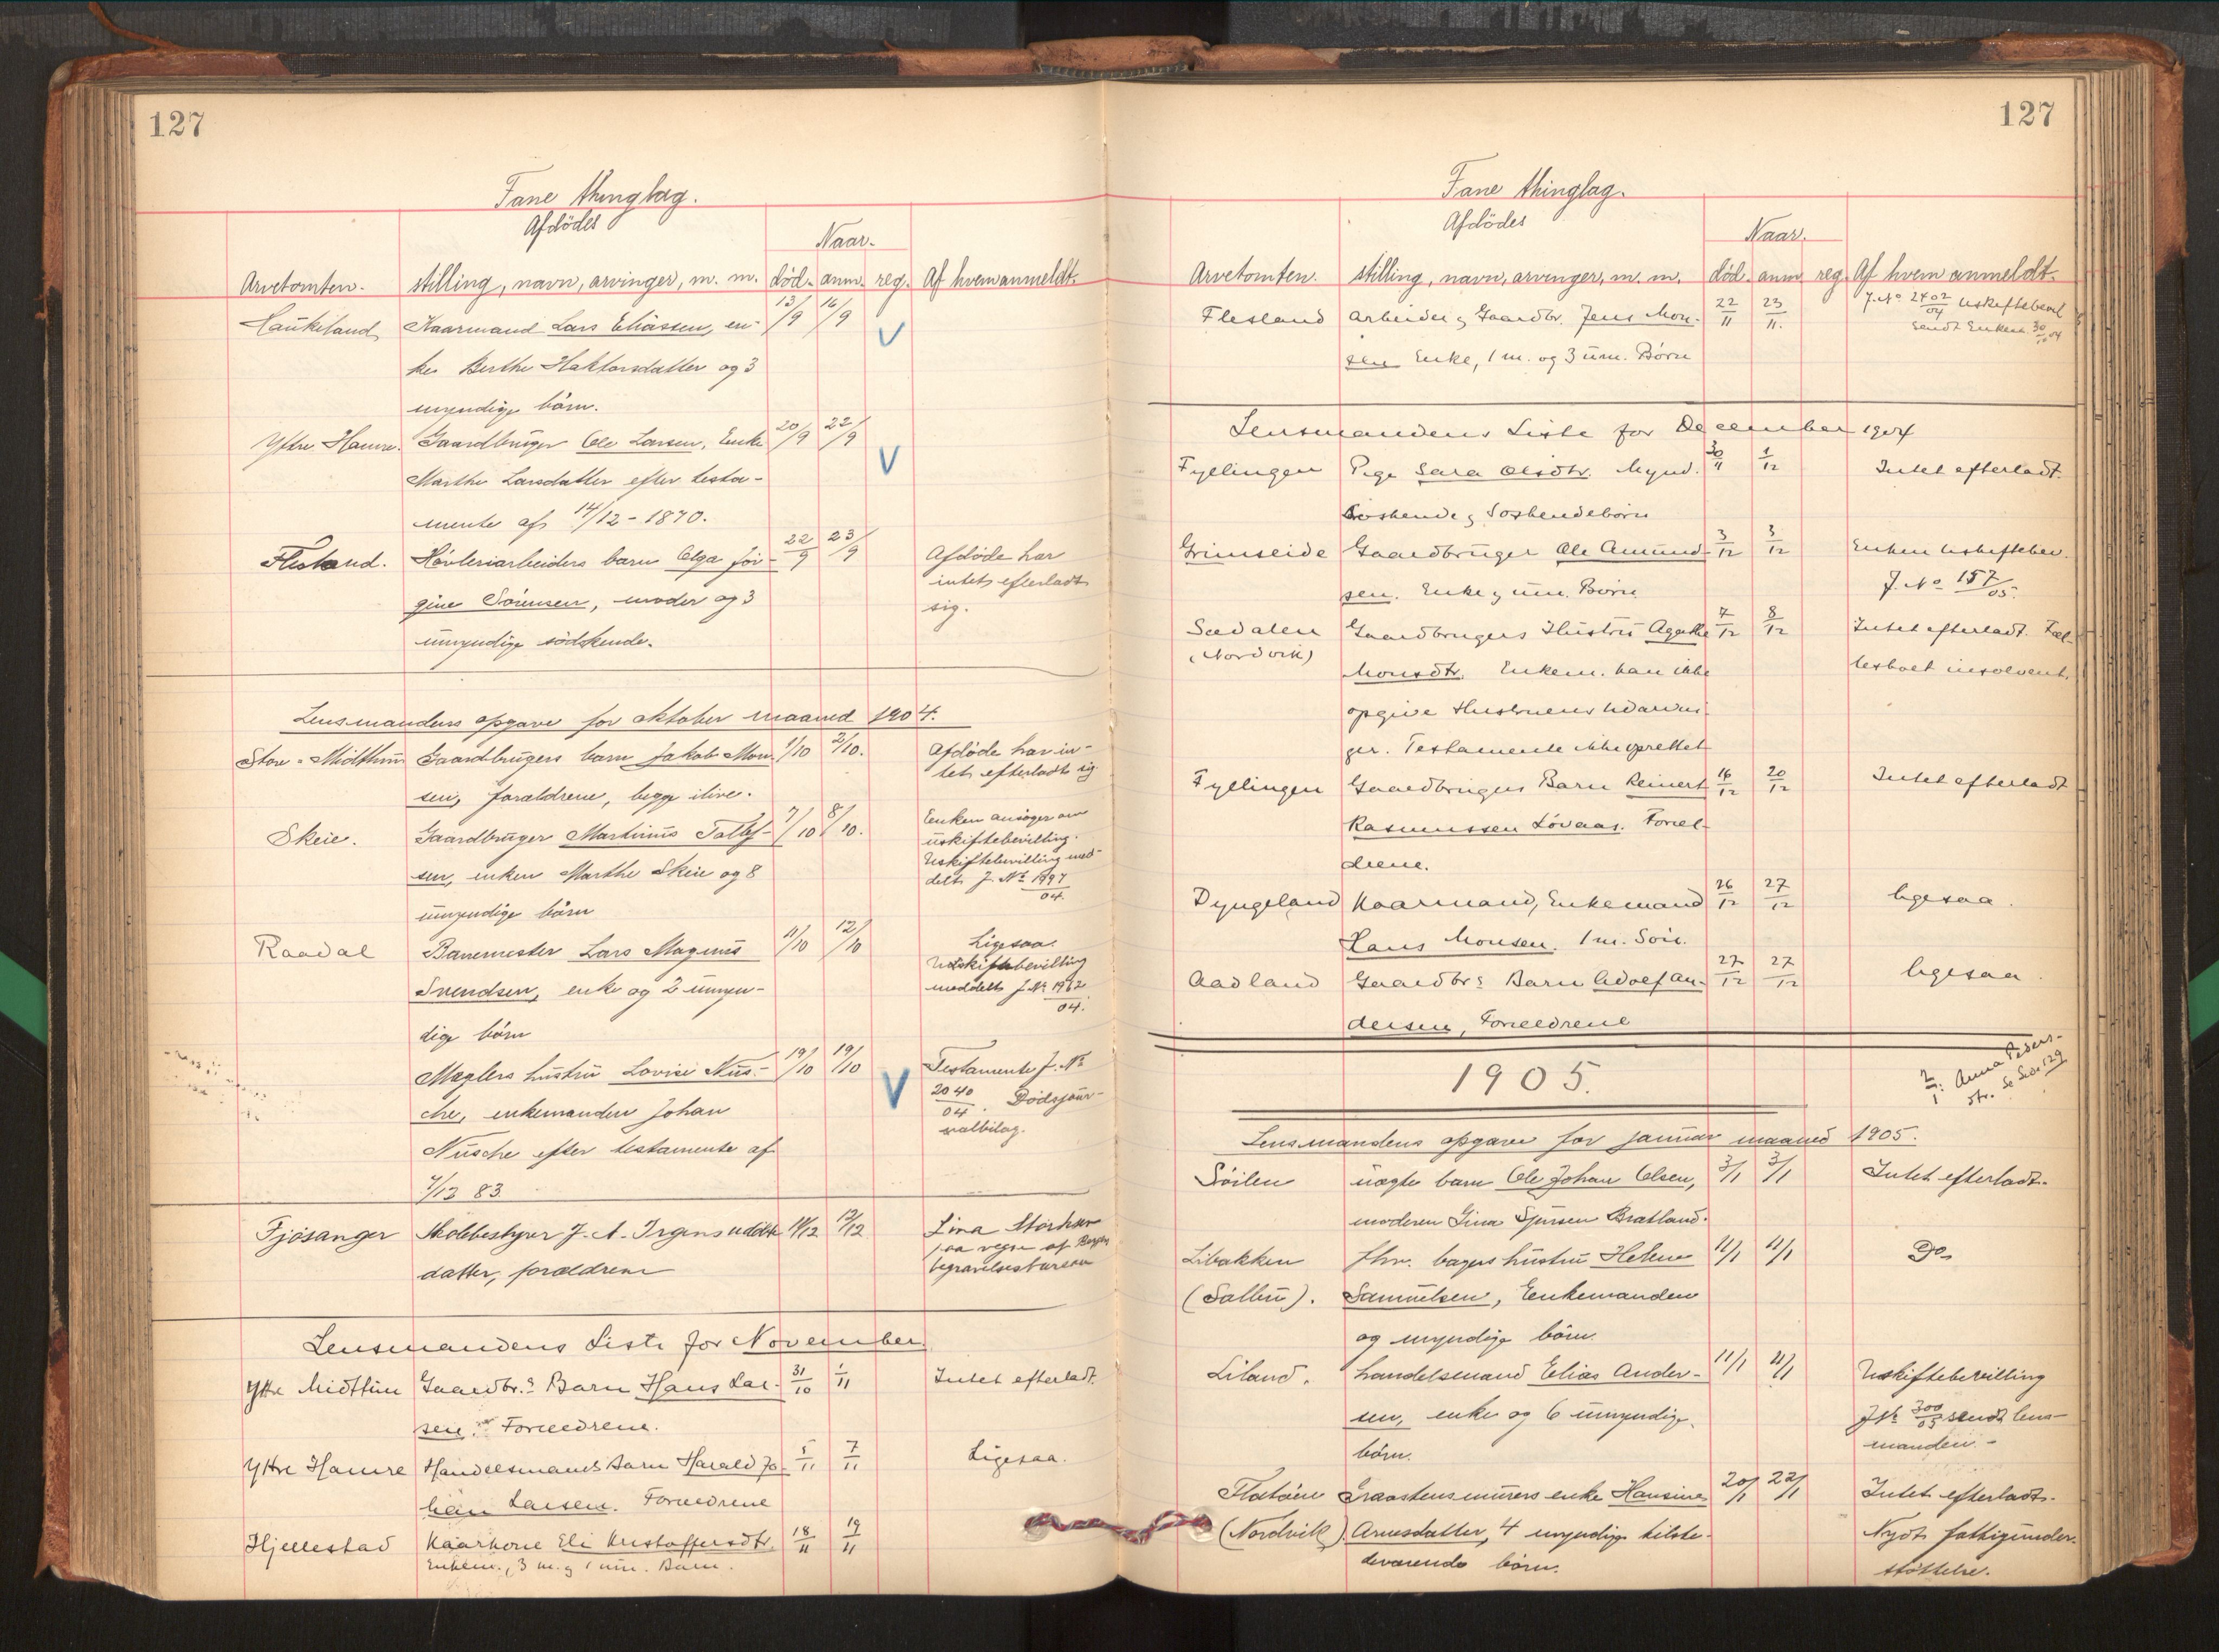 127
Fane thinglag.
Afdödes
Naar.
Arvetomten. stilling, navn, arvinger, m. m. död. anm. reg. Af hvem anmeldt.
Haukeland Kaarmand Lars Eliassen, en- 13/9 16/9
ke Berthe Haktorsdatter og 3
myndige börn.
Yttre Hamre. Gaardbruger Ole Larsen, Enke 20/9 22/9
Marthe Larsdatter efter testa-
mente af 14/12 - 1870.
Flesland. Hövleriarbeiders barn Olga Jör- 22/9 23/9 Afdöde har
gine Sörensen, moder og 3 intet efterladt
umyndige södskende. sig.
Lensmandens opgave for oktober maaned 1904.
Store-Midthun Gaardbrugers barn Jakob Mon- 1/10 2/10. Afdöde har in-
sen, forældrene, begge ilive. tet efterladt sig
Skeie. Gaardbruger Martinus Tollef- 7/10 8/10. Enken ansöger om
sen, enken Marthe Skeie og 8 uskiftebevilling.
umyndige börn Uskiftebevilling med-
delt J. № 1997/04.
Raadal Banemester Lars Magnus 11/10 12/10 Ligesaa.
Svendsen, enke og 2 umyn- Uskiftebevilling
dige börn meddelt J № 1962/04.
Mæglers hustru Lovise Nus- 19/10 19/10 Testamente J. №
che, enkemanden Johan 2040/04. Dödsjour-
Nusche efter testamente af nalbilag.
7/12 83
Fjösanger Skolebestyrer J. A. Irgens uddöbte 11/12 12/12 Lina
datter, forældrene paa vegne af Bergens
begravelsesbureau
Lensmandens Liste for November
Yttre Midttun Gaardbr.s Barn Hans Lar- 31/10 1/11 Intet efterladt.
sen. Forældrene.
Yttre Hamre Handelsmands Barn Harald Jo- 5/11 7/11 Ligesaa.
han Larsen. Forældrene
Hjellestad Kaarkone Eli Kristoffersdtr. 18/11 19/11
Enkem., 3 m. og 1 um. Barn.
127
Fane thinglag.
Afdödes
Naar.
Arvetomten. stilling, navn, arvinger, m. m. död. anm. reg. Af hvem anmeldt.
Flesland Arbeider og Gaardbr. Jens Mon- 22/11 23/11. J. № 2402/04 Uskiftebevil
sen Enke, 1 m. og 3 um. Børn sendt Enken 30/11 04
Lensmandens Liste for December 1904
Fyllingen Pige Sara Olsdtr. Mynd. 30/11 1/12 Intet efterladt.
Søskende og Søskendebørn
Grimseide Gaardbruger Ole Amund- 3/12 3/12 Enken Uskiftebev.
sen. Enke og um. Børn J. № 157/05.
Sædalen Gaardbrugers Hustru Agathe 7/12 8/12 Intet efterladt. Fæl-
(Nordvik) Monsdtr. Enkem. kan ikke lesboet insolvent.
opgive Hustruens Udarvin-
ger. Testamente ikke oprettet
Fyllingen Gaardbrugers Barn Reinert 16/12 20/12 Intet efterladt
Rasmussen Løvaas. Foræl-
drene.
Dyngeland Kaarmand, Enkemand 26/12 27/12 ligesaa.
Hans Monsen. 1 m. Søn.
Aadland Gaardbr.s Barn Adolf An- 27/12 27/12 ligesaa
dersen, Forældrene
1905.
2/1. Anna Peders-
dtr. Se Side 129
Lensmandens opgave for januar maaned 1905.
Söilen uægte barn Ole Johan Olsen, 3/1 3/1 Intet efterladt.
moderen Gina Sjursen Bratland.
Libakken fhv. bagers hustru Helene 11/1 11/1 Do
(Sælen). Samuelsen, Enkemanden
og myndige börn.
Liland. handelsmand Elias Ander- 11/1 11/1 Uskiftebevilling
sen, enke og 6 umyndige J № 300/05 sendt lens-
börn. manden.-
Flatöen Graastensmurers enke Hansine 20/1 22/1 Intet efterladt.
(Nordvik) Arnesdatter, 4 myndige tilste- Nydt fattigunder-
deværende börn. støttelse.